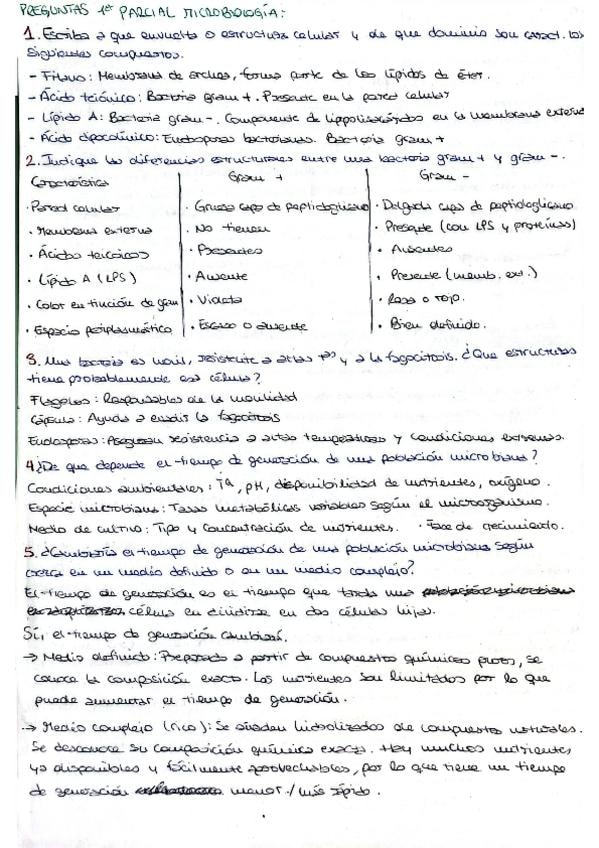 PREGUNTAS 1er PARCIAL MICROBIOLOGÍA:
1. Escriba a que envuelta o estructura celular y de que dominio son caract. los
siguientes compuestos.
- Fitano: Membrana de arqueas, forma parte de los lípidos de éter.
- Ácido teicóico: Bacteria gram +. Presente en la pared celular
- Lípido A: Bacteria gram -. Componente de lipopolisacáridos en la membrana externa
- Ácido dipicolínico: Endosporas bacterianas. Bacteria gram +
2. Indique las diferencias estructurales entre una bacteria gram + y gram -.
Característica Gram + Gram -
· Pared celular · Gruesa capa de peptidoglicano · Delgada capa de peptidoglicano
· Membrana externa · No tienen · Presente (con LPS y proteínas)
· Ácidos teicoicos · Presentes · Ausentes
· Lípido A (LPS) · Ausente · Presente (memb. ext.)
· Color en tinción de gram · Violeta · Rosa o rojo.
· Espacio periplasmático · Escaso o ausente · Bien definido.
3. Una bacteria es móvil, resistente a altas Tas y a la fagocitosis. ¿Que estructuras
tiene probablemente esa célula?
Flagelos: Responsables de la movilidad
Cápsula: Ayuda a evadir la fagocitosis
Endosporas: Aseguran resistencia a altas temperaturas y condiciones extremas.
4. ¿De que depende el tiempo de generación de una población microbiana?
Condiciones ambientales: Tª, pH, disponibilidad de nutrientes, oxígeno.
Especie microbiana: Tasas metabólicas variables según el microorganismo.
Medio de cultivo: Tipo y concentración de nutrientes. · Fase de crecimiento.
5. ¿Cambiaría el tiempo de generación de una población microbiana según
crezca en un medio definido o en un medio complejo?
El tiempo de generación es el tiempo que tarda una
célula en dividirse en dos células hijas.
Sí, el tiempo de generación cambiará.
→ Medio definido: Preparado a partir de compuestos químicos puros, se
conoce la composición exacta. Los nutrientes son limitados por lo que
puede aumentar el tiempo de generación.
→ Medio complejo (rico): Se añaden hidrolizados de compuestos naturales.
Se desconoce su composición química exacta. Hay muchos nutrientes
ya disponibles y fácilmente aprovechables, por lo que tiene un tiempo
de generación menor / más rápido.